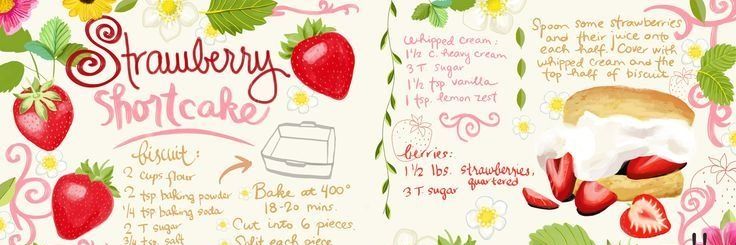 Strawberry
Shortcake
biscuit:
2 cups flour
2 tsp baking powder
1/4 tsp baking soda
2 T sugar
3/4 tsp salt
Bake at 400°
18-20 mins.
Cut into 6 pieces.
Split each piece
Whipped cream:
1 1/2 c. heavy cream
3 T sugar
1 1/2 tsp vanilla
1 tsp. lemon zest
berries:
1 1/2 lbs. strawberries,
quartered
3 T sugar
Spoon some strawberries
and their juice onto
each half. Cover with
whipped cream and the
top half of biscuit.